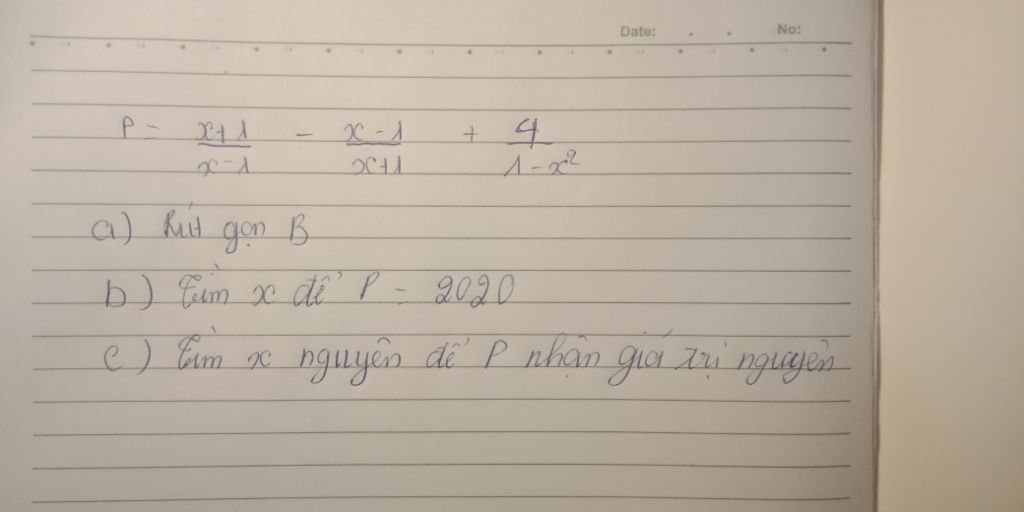 Date: No:
P = \frac{x+1}{x-1} - \frac{x-1}{x+1} + \frac{4}{1-x^2}
a) Rút gọn B
b) Tìm x để P = 2020
c) Tìm x nguyên để P nhận giá trị nguyên